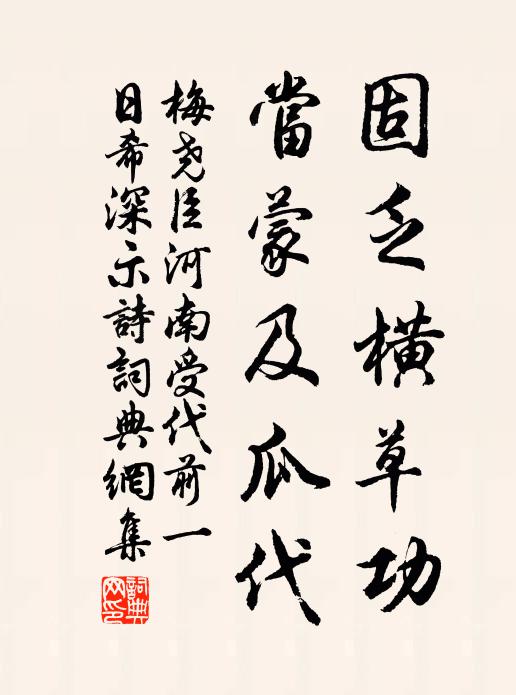 固乏橫草功
當蒙及瓜代
梅尧臣河南受代前一
日希深示詩詞典網集
詞典网印